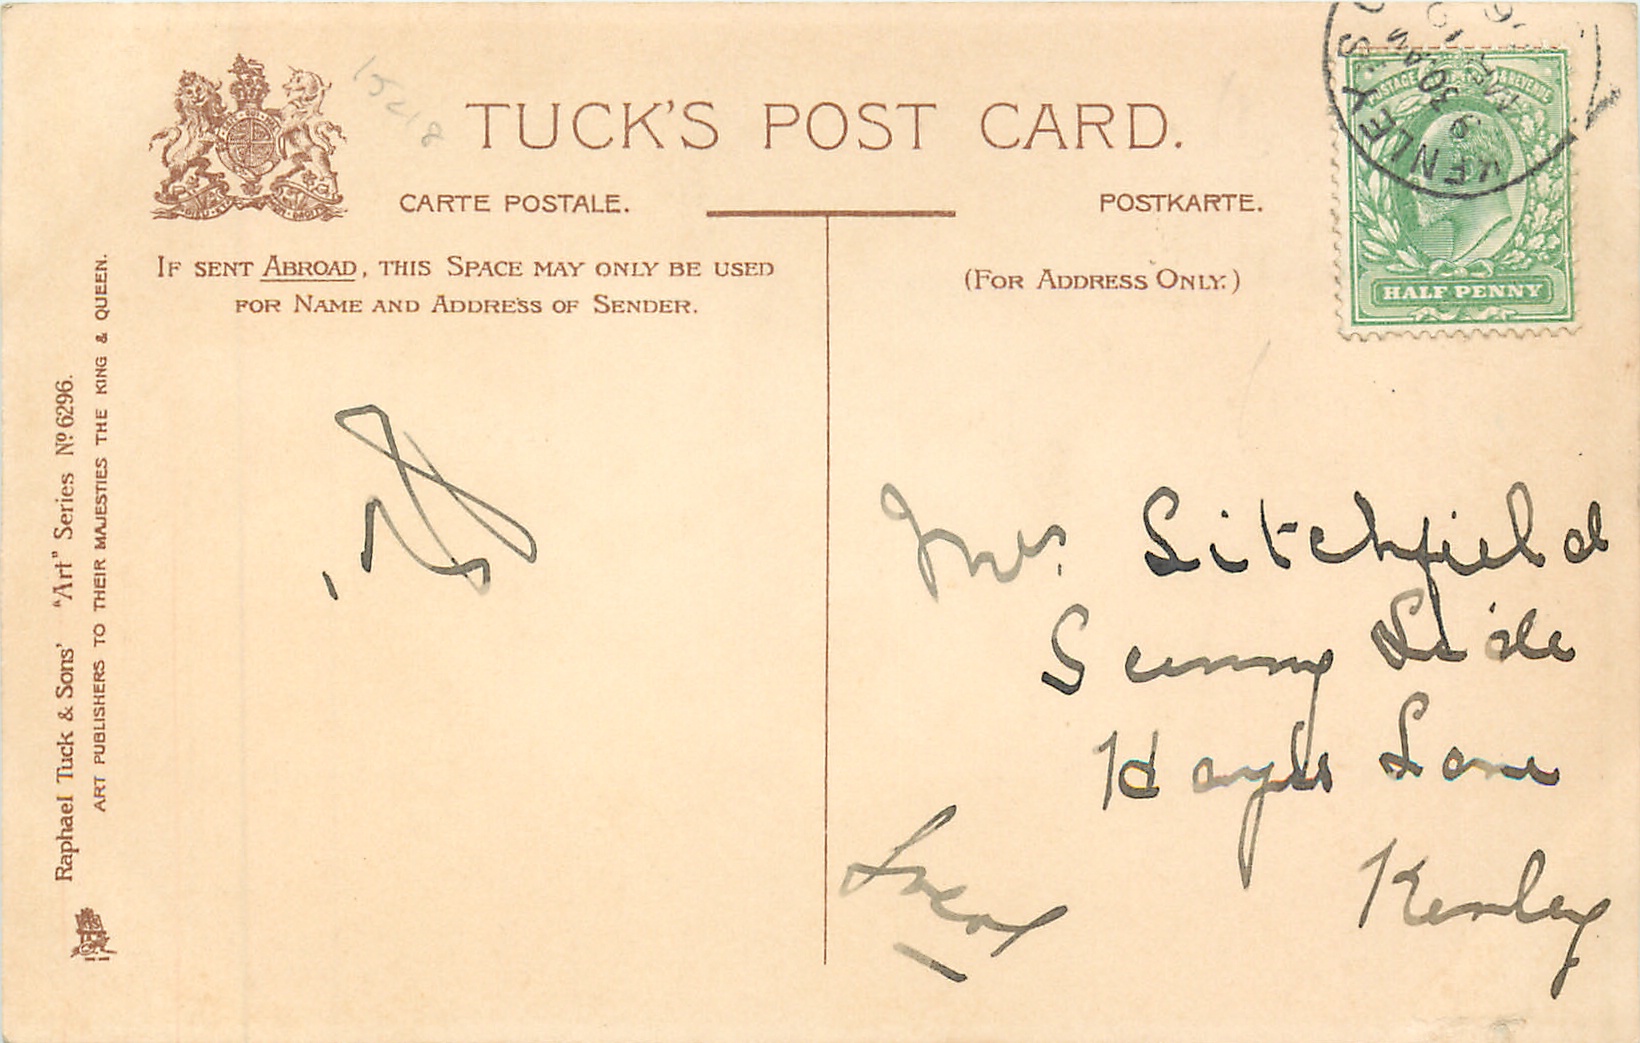 TUCK'S POST CARD.
CARTE POSTALE.
POSTKARTE.
IF SENT ABROAD, THIS SPACE MAY ONLY BE USED
FOR NAME AND ADDRESS OF SENDER.
(FOR ADDRESS ONLY.)
POSTAGE & REVENUE
HALF PENNY
KENLEY S.O
9 30AM
MR 19
Raphael Tuck & Sons' "Art" Series No 6296.
ART PUBLISHERS TO THEIR MAJESTIES THE KING & QUEEN.
Mrs. Litchfield
Sunny Side
Hayes Lane
Kenley
Local